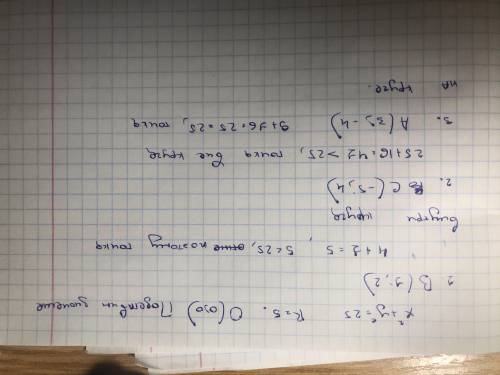 x²+y²=25   R=5.   O(0;0)   Подставим значение
1. B(1; 2)
4+1=5, 5<25, поэтому точка
внутри круга
2. C(-5; 4)
25+16=41 > 25, точка вне круга
3. A(3; -4)   9+16=25=25, точка
на круге.